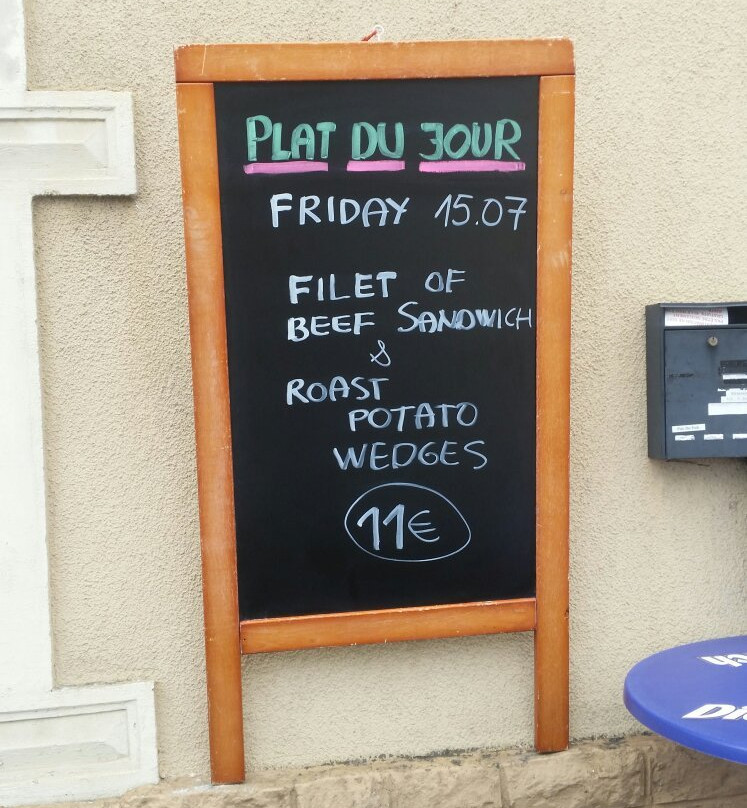 PLAT DU JOUR
FRIDAY 15.07
FILET OF
BEEF SANDWICH
&
ROAST
POTATO
WEDGES
11€